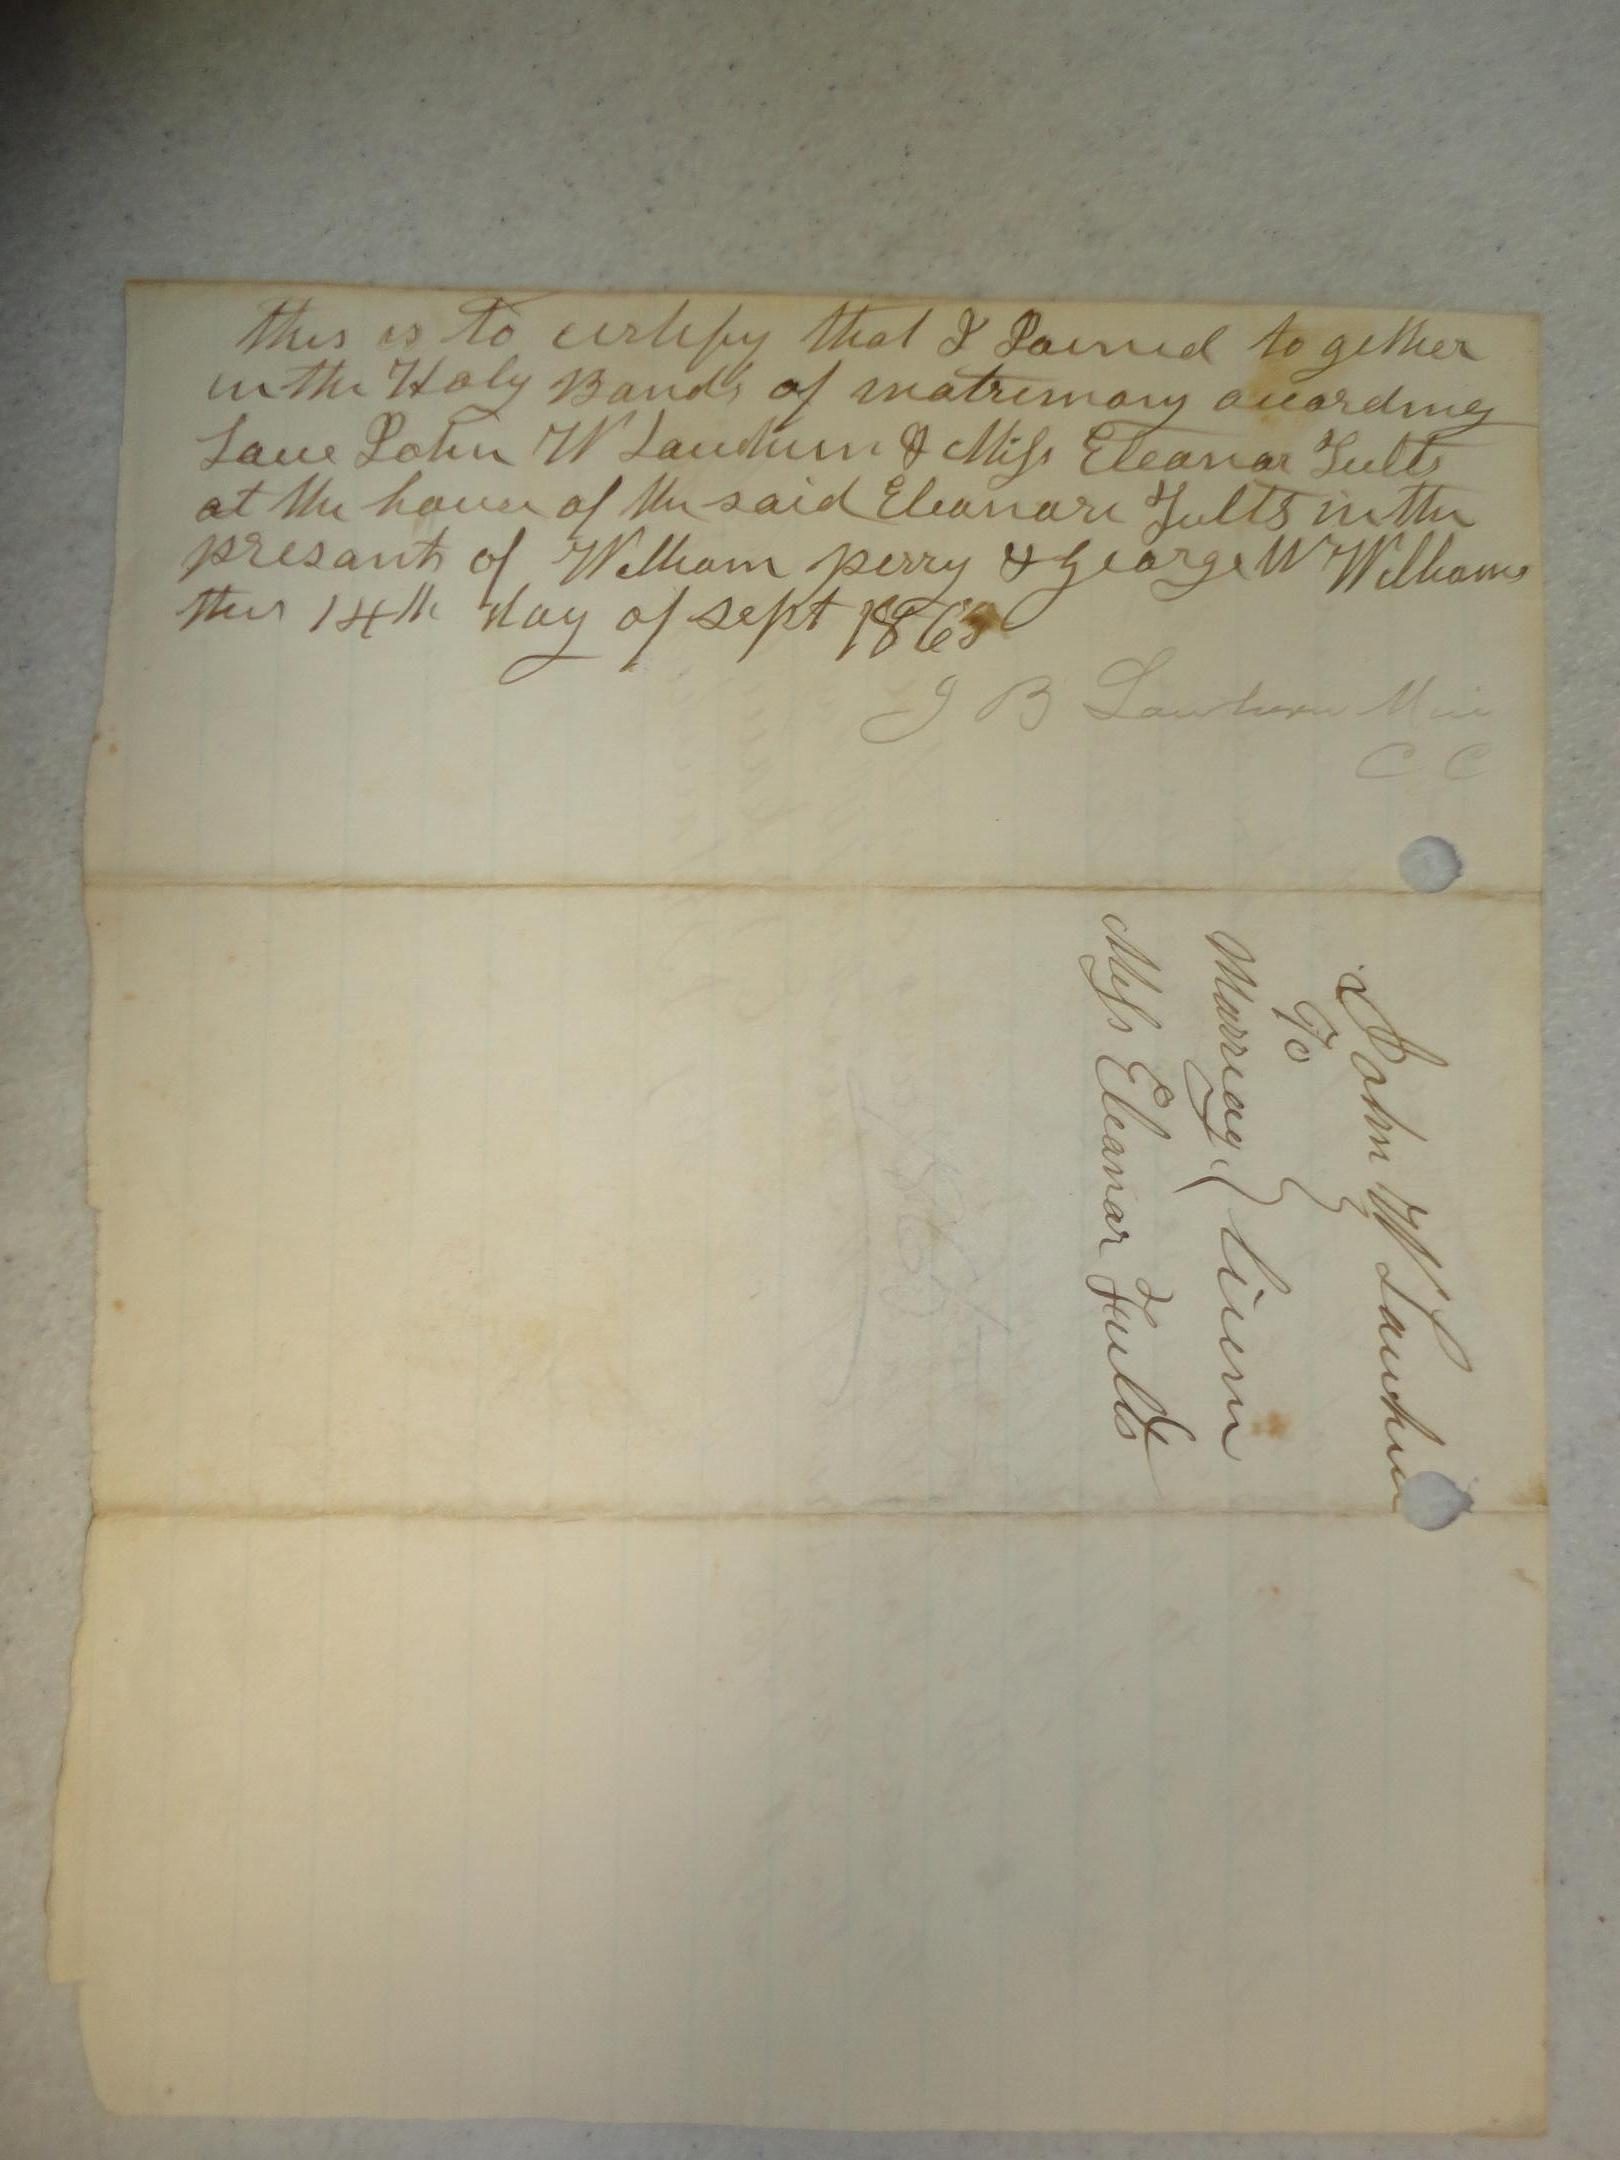 this is to certify that I Joined together
in the Holy Bands of matrimony according
Law John W Lawhun & Miss Eleanor Fults
at the house of the said Eleanore Fults in the
presants of William perry & George W Williams
this 14th day of sept 1865
J B Lawhun Min
C C
John W Lawhun
To
Marriag Licen
Miss Eleanar Fults
1865